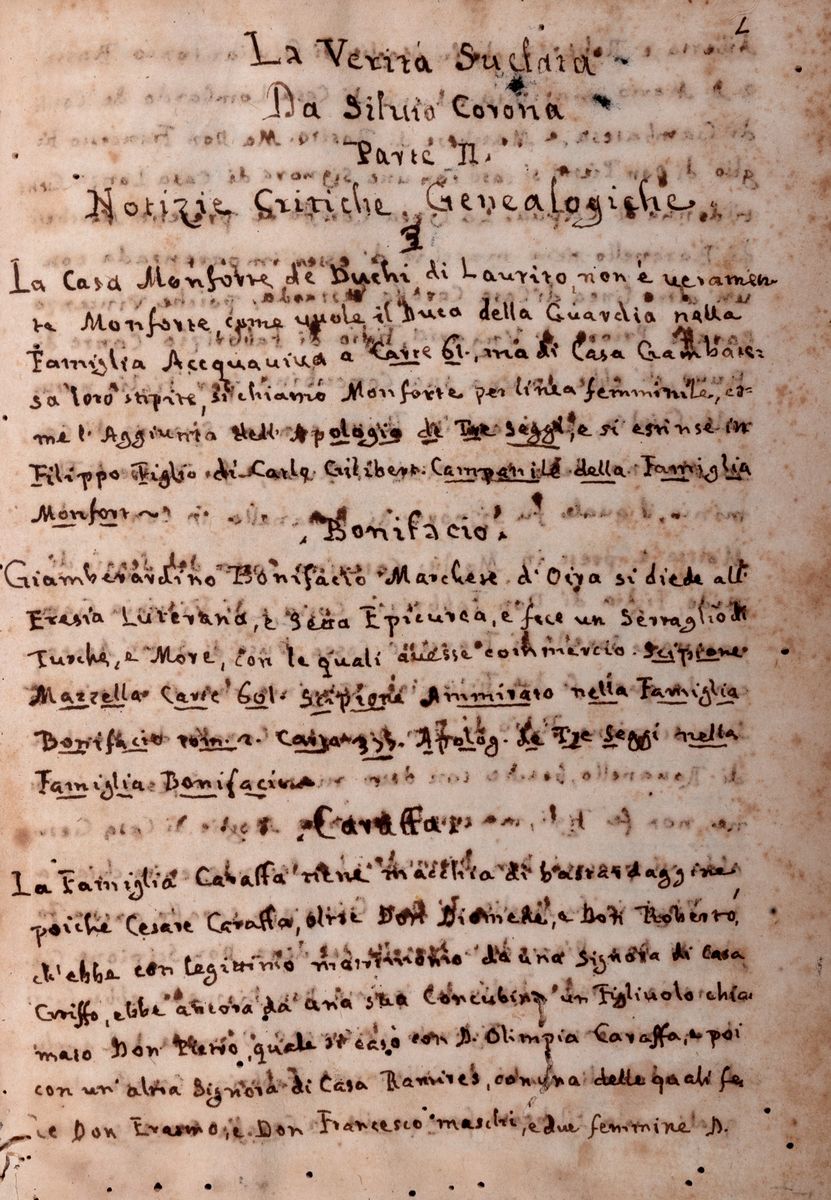 La Verita Suelata
Da Siluio Corona
Parte II.
Notizie Critiche, Genealogiche.
La Casa Monforte de Duchi di Laurito, non è ueramen-
te Monforte, come uuole il Duca della Guardia nella
Famiglia Accquauiua a Carte 61., ma di Casa Gambate-
sa loro stipite, si chiamò Monforte per linea femminile, co-
me l'Aggiunta dell'Apologio di Tre Seggi, e si estinse in
Filippo Figlio di Carlo Gilibert. Campanile della Famiglia
Monfort
Bonifacio.
Giamberardino Bonifacio Marchese d'Oira si diede all'
Eresia Luterana, e Setta Epicurea, e fece un Serraglio di
Turche, e More, con le quali auesse commercio. Scipione
Mazzella Carte 601. Scipione Ammirato nella Famiglia
Bonifacio tom. 2. Apolog. de Tre Seggi nella
Famiglia Bonifacio
Caraffa.
La Famiglia Caraffa tiene macchia di bastardaggine,
poiche Cesare Caraffa, oltre Don Diomede, e Don Roberto,
ch'ebbe con legittimo matrimonio da una Signora di Casa
Griffo, ebbe ancora da una sua Concubina un Figliuolo chia-
mato Don Pietro, quale si casò con D. Olimpia Caraffa, e poi
con un'altra Signora di Casa Ramires, con una delle quali fe-
ce Don Erasmo, e Don Francesco maschi, e due femmine D.